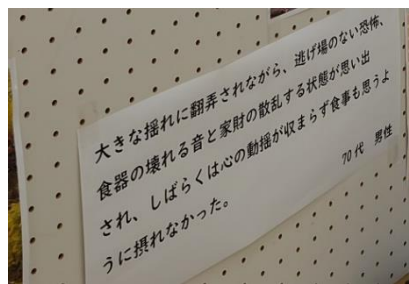 大きな揺れに翻弄されながら、逃げ場のない恐怖、
食器の壊れる音と家財の散乱する状態が思い出
され、しばらくは心の動揺が収まらず食事も思うよ
うに摂れなかった。
70代　男性